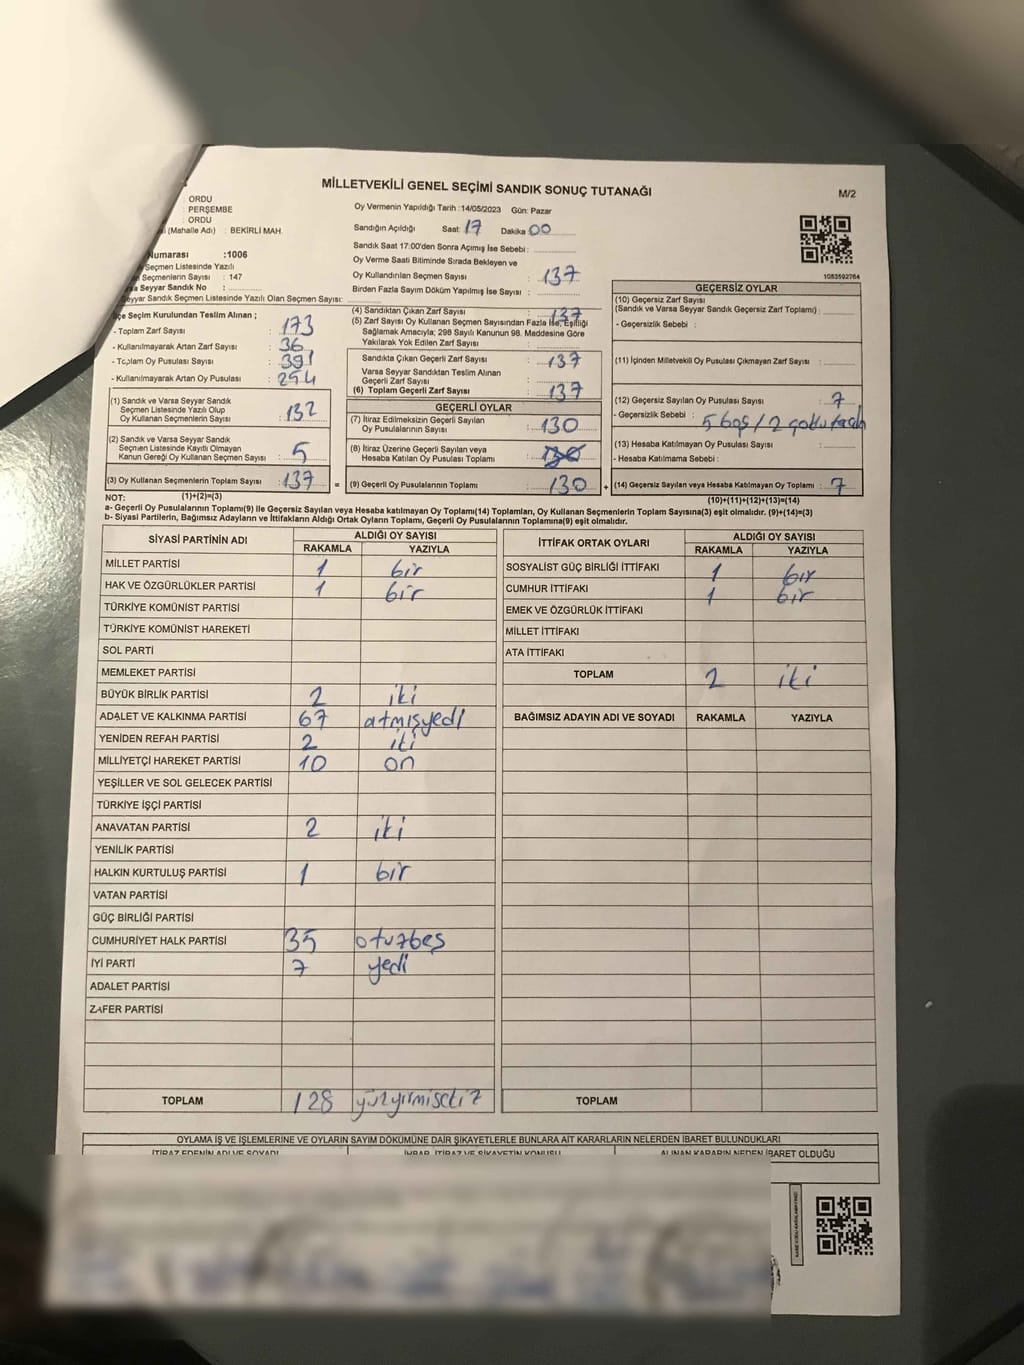 MİLLETVEKİLİ GENEL SEÇİMİ SANDIK SONUÇ TUTANAĞI
M/2
: ORDU
: PERŞEMBE
: ORDU
(Mahalle Adı) : BEKİRLİ MAH.
Numarası :1006
Seçmen Listesinde Yazılı
Seçmenlerin Sayısı : 147
Seyyar Sandık No :
Seyyar Sandık Seçmen Listesinde Yazılı Olan Seçmen Sayısı:
Oy Vermenin Yapıldığı Tarih :14/05/2023 Gün: Pazar
Sandığın Açıldığı Saat: 17 Dakika 00
Sandık Saat 17:00'den Sonra Açımış İse Sebebi :
Oy Verme Saati Bitiminde Sırada Bekleyen ve
Oy Kullandırılan Seçmen Sayısı : 137
Birden Fazla Sayım Döküm Yapılmış İse Sayısı :
1083592764
İlçe Seçim Kurulundan Teslim Alınan ;
- Toplam Zarf Sayısı : 173
- Kullanılmayarak Artan Zarf Sayısı : 36
- Toplam Oy Pusulası Sayısı : 391
- Kullanılmayarak Artan Oy Pusulası : 254
(1) Sandık ve Varsa Seyyar Sandık
Seçmen Listesinde Yazılı Olup
Oy Kullanan Seçmenlerin Sayısı : 132
(2) Sandık ve Varsa Seyyar Sandık
Seçmen Listesinde Kayıtlı Olmayan
Kanun Gereği Oy Kullanan Seçmen Sayısı : 5
(3) Oy Kullanan Seçmenlerin Toplam Sayısı : 137 =
(4) Sandıktan Çıkan Zarf Sayısı : 137
(5) Zarf Sayısı Oy Kullanan Seçmen Sayısından Fazla İse, Eşitliği
Sağlamak Amacıyla; 298 Sayılı Kanunun 98. Maddesine Göre
Yakılarak Yok Edilen Zarf Sayısı :
Sandıkta Çıkan Geçerli Zarf Sayısı : 137
Varsa Seyyar Sandıktan Teslim Alınan
Geçerli Zarf Sayısı :
(6) Toplam Geçerli Zarf Sayısı : 137
GEÇERLİ OYLAR
(7) İtiraz Edilmeksizin Geçerli Sayılan
Oy Pusulalarının Sayısı : 130
(8) İtiraz Üzerine Geçerli Sayılan veya
Hesaba Katılan Oy Pusulası Toplamı : 130
(9) Geçerli Oy Pusulalarının Toplamı : 130 +
GEÇERSİZ OYLAR
(10) Geçersiz Zarf Sayısı
(Sandık ve Varsa Seyyar Sandık Geçersiz Zarf Toplamı) :
- Geçersizlik Sebebi :
(11) İçinden Milletvekili Oy Pusulası Çıkmayan Zarf Sayısı :
(12) Geçersiz Sayılan Oy Pusulası Sayısı : 7
- Geçersizlik Sebebi : 5 boş / 2
(13) Hesaba Katılmayan Oy Pusulası Sayısı :
- Hesaba Katılmama Sebebi :
(14) Geçersiz Sayılan veya Hesaba Katılmayan Oy Toplamı : 7
NOT: (1)+(2)=(3)
(10)+(11)+(12)+(13)=(14)
a- Geçerli Oy Pusulalarının Toplamı(9) İle Geçersiz Sayılan veya Hesaba katılmayan Oy Toplamı(14) Toplamları, Oy Kullanan Seçmenlerin Toplam Sayısına(3) eşit olmalıdır. (9)+(14)=(3)
b- Siyasi Partilerin, Bağımsız Adayların ve İttifakların Aldığı Ortak Oyların Toplamı, Geçerli Oy Pusulalarının Toplamına(9) eşit olmalıdır.
SİYASİ PARTİNİN ADI ALDIĞI OY SAYISI
RAKAMLA YAZIYLA
MİLLET PARTİSİ 1 bir
HAK VE ÖZGÜRLÜKLER PARTİSİ 1 bir
TÜRKİYE KOMÜNİST PARTİSİ
TÜRKİYE KOMÜNİST HAREKETİ
SOL PARTİ
MEMLEKET PARTİSİ
BÜYÜK BİRLİK PARTİSİ 2 iki
ADALET VE KALKINMA PARTİSİ 67 atmışyedi
YENİDEN REFAH PARTİSİ 2 iki
MİLLİYETÇİ HAREKET PARTİSİ 10 on
YEŞİLLER VE SOL GELECEK PARTİSİ
TÜRKİYE İŞÇİ PARTİSİ
ANAVATAN PARTİSİ 2 iki
YENİLİK PARTİSİ
HALKIN KURTULUŞ PARTİSİ 1 bir
VATAN PARTİSİ
GÜÇ BİRLİĞİ PARTİSİ
CUMHURİYET HALK PARTİSİ 35 otuzbeş
İYİ PARTİ 7 yedi
ADALET PARTİSİ
ZAFER PARTİSİ
TOPLAM 128 yüzyirmisekiz
İTTİFAK ORTAK OYLARI ALDIĞI OY SAYISI
RAKAMLA YAZIYLA
SOSYALİST GÜÇ BİRLİĞİ İTTİFAKI 1 bir
CUMHUR İTTİFAKI 1 bir
EMEK VE ÖZGÜRLÜK İTTİFAKI
MİLLET İTTİFAKI
ATA İTTİFAKI
TOPLAM 2 iki
BAĞIMSIZ ADAYIN ADI VE SOYADI RAKAMLA YAZIYLA
TOPLAM
OYLAMA İŞ VE İŞLEMLERİNE VE OYLARIN SAYIM DÖKÜMÜNE DAİR ŞİKAYETLERLE BUNLARA AİT KARARLARIN NELERDEN İBARET BULUNDUKLARI
İTİRAZ EDENİN ADI VE SOYADI İHBAR, İTİRAZ VE ŞİKAYETİN KONUSU ALINAN KARARIN NEDEN İBARET OLDUĞU